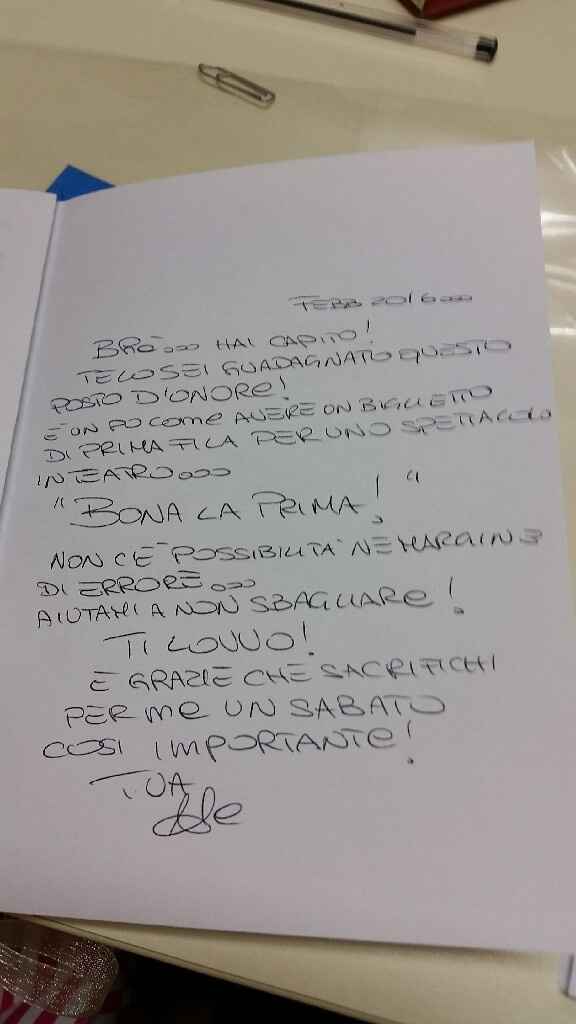 FEBB 2016ooo
BRO'ooo HAI CAPITO!
TE LO SEI GUADAGNATO QUESTO
POSTO D'ONORE!
È UN PO COME AVERE UN BIGLIETTO
DI PRIMA FILA PER UNO SPETTACOLO
IN TEATROooo
"BONA LA PRIMA!"
NON C'È POSSIBILITÀ NE MARGINE
DI ERROREooo
AIUTAMI A NON SBAGLIARE!
TI LOVVO!
E GRAZIE CHE SACRIFICHI
PER ME UN SABATO
COSI IMPORTANTE!
TUA